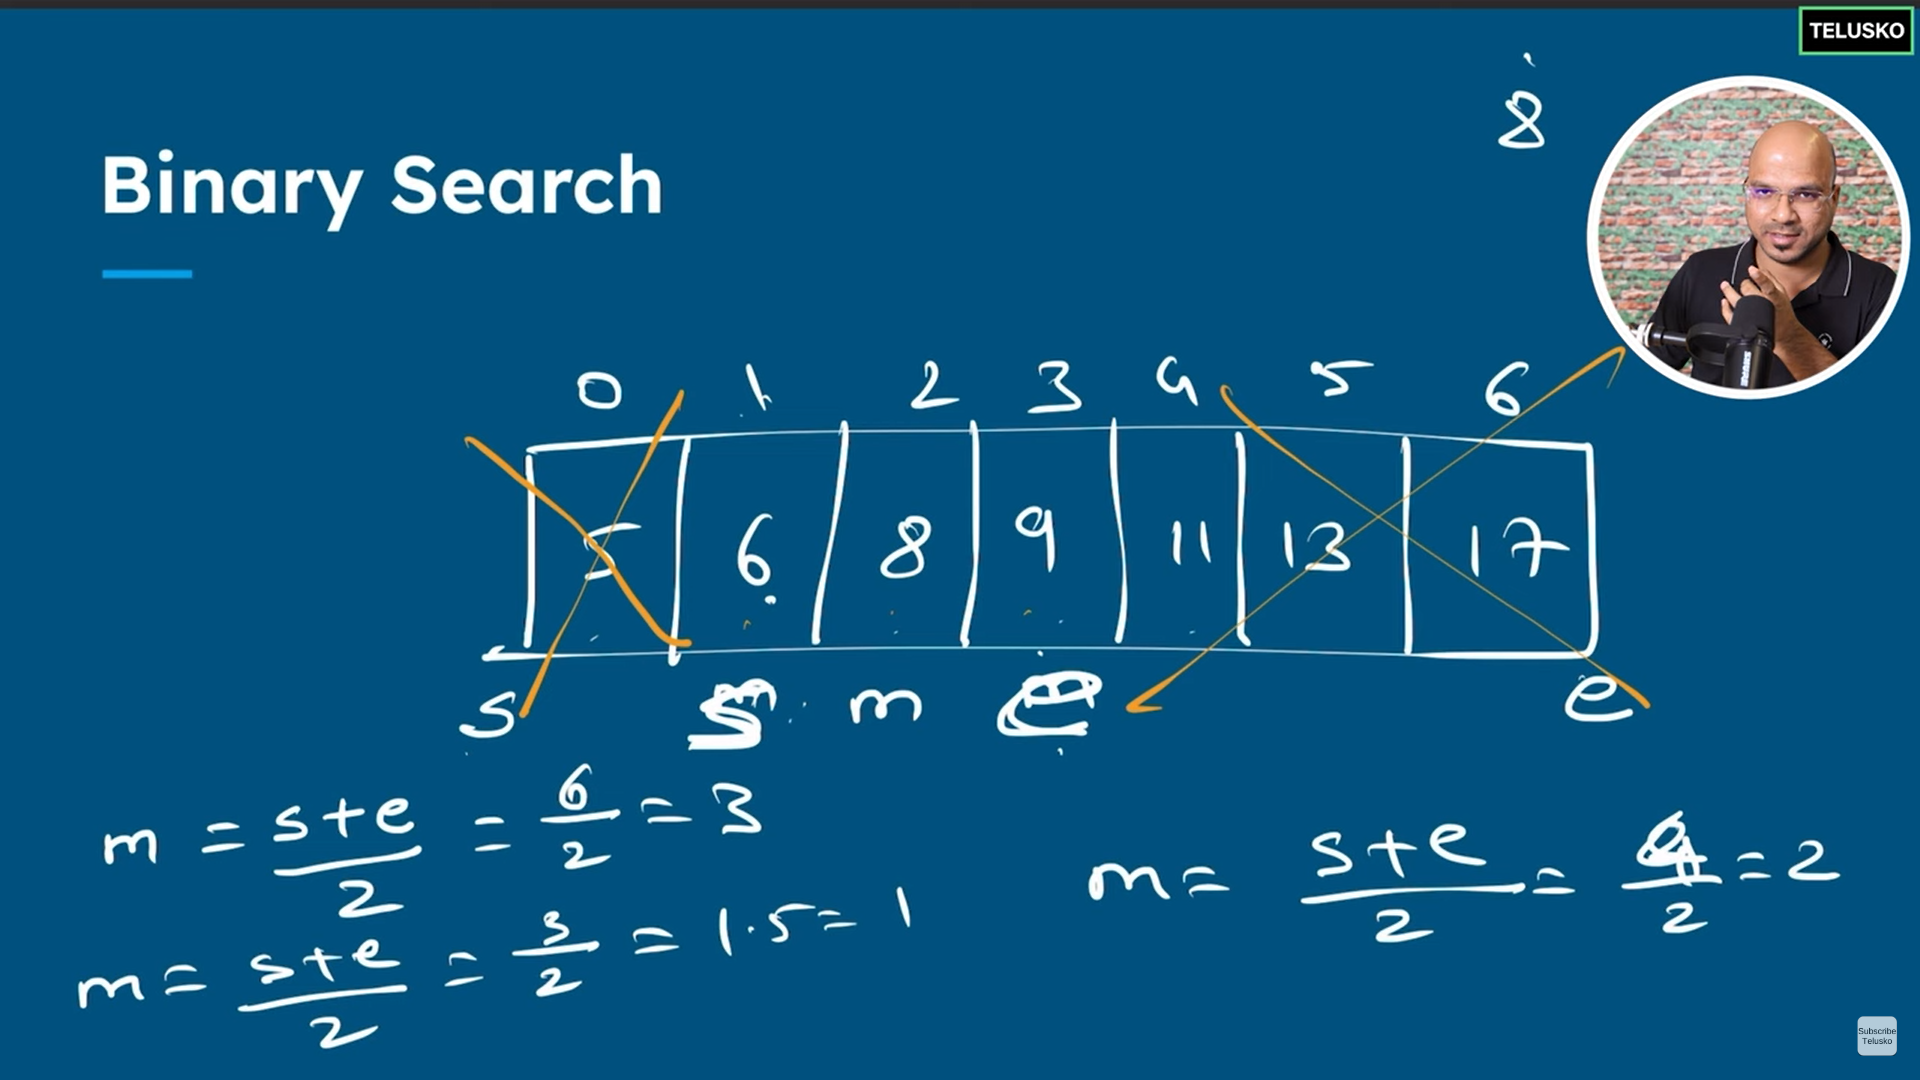 TELUSKO
8
Binary Search
0 1 2 3 4 5 6
5 6 8 9 11 13 17
s s m e e
m = s+e/2 = 6/2 = 3
m = s+e/2 = 3/2 = 1.5 = 1
m = s+e/2 = 4/2 = 2
Subscribe
Telusko